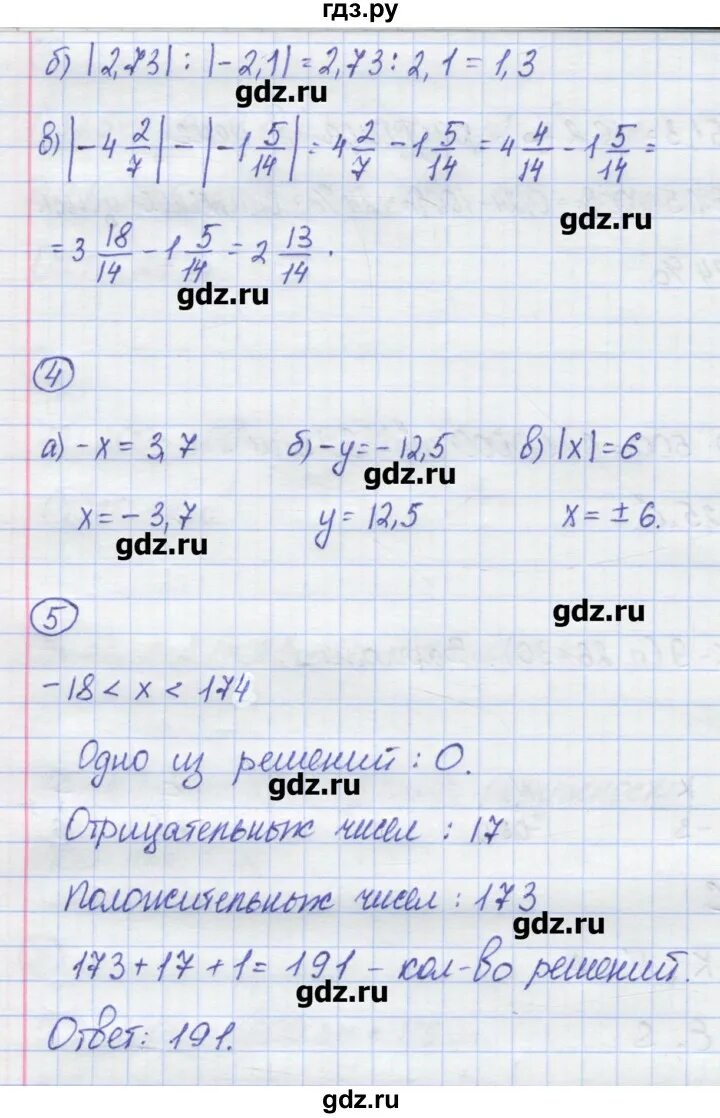 гдз.ру
б) |2,73| : |-2,1| = 2,73 : 2,1 = 1,3
gdz.ru
в) |-4 2/7| - |-1 5/14| = 4 2/7 - 1 5/14 = 4 4/14 - 1 5/14 =
gdz.ru
= 3 18/14 - 1 5/14 = 2 13/14.
gdz.ru
4
а) -x = 3,7 б) -y = -12,5 в) |x| = 6
gdz.ru
x = -3,7 y = 12,5 x = ± 6.
gdz.ru
gdz.ru
5
-18 < x < 174
Одно из решений : 0.
gdz.ru
Отрицательных чисел : 17
Положительных чисел : 173
gdz.ru
173 + 17 + 1 = 191 - кол-во решений.
gdz.ru
Ответ: 191.
gdz.ru